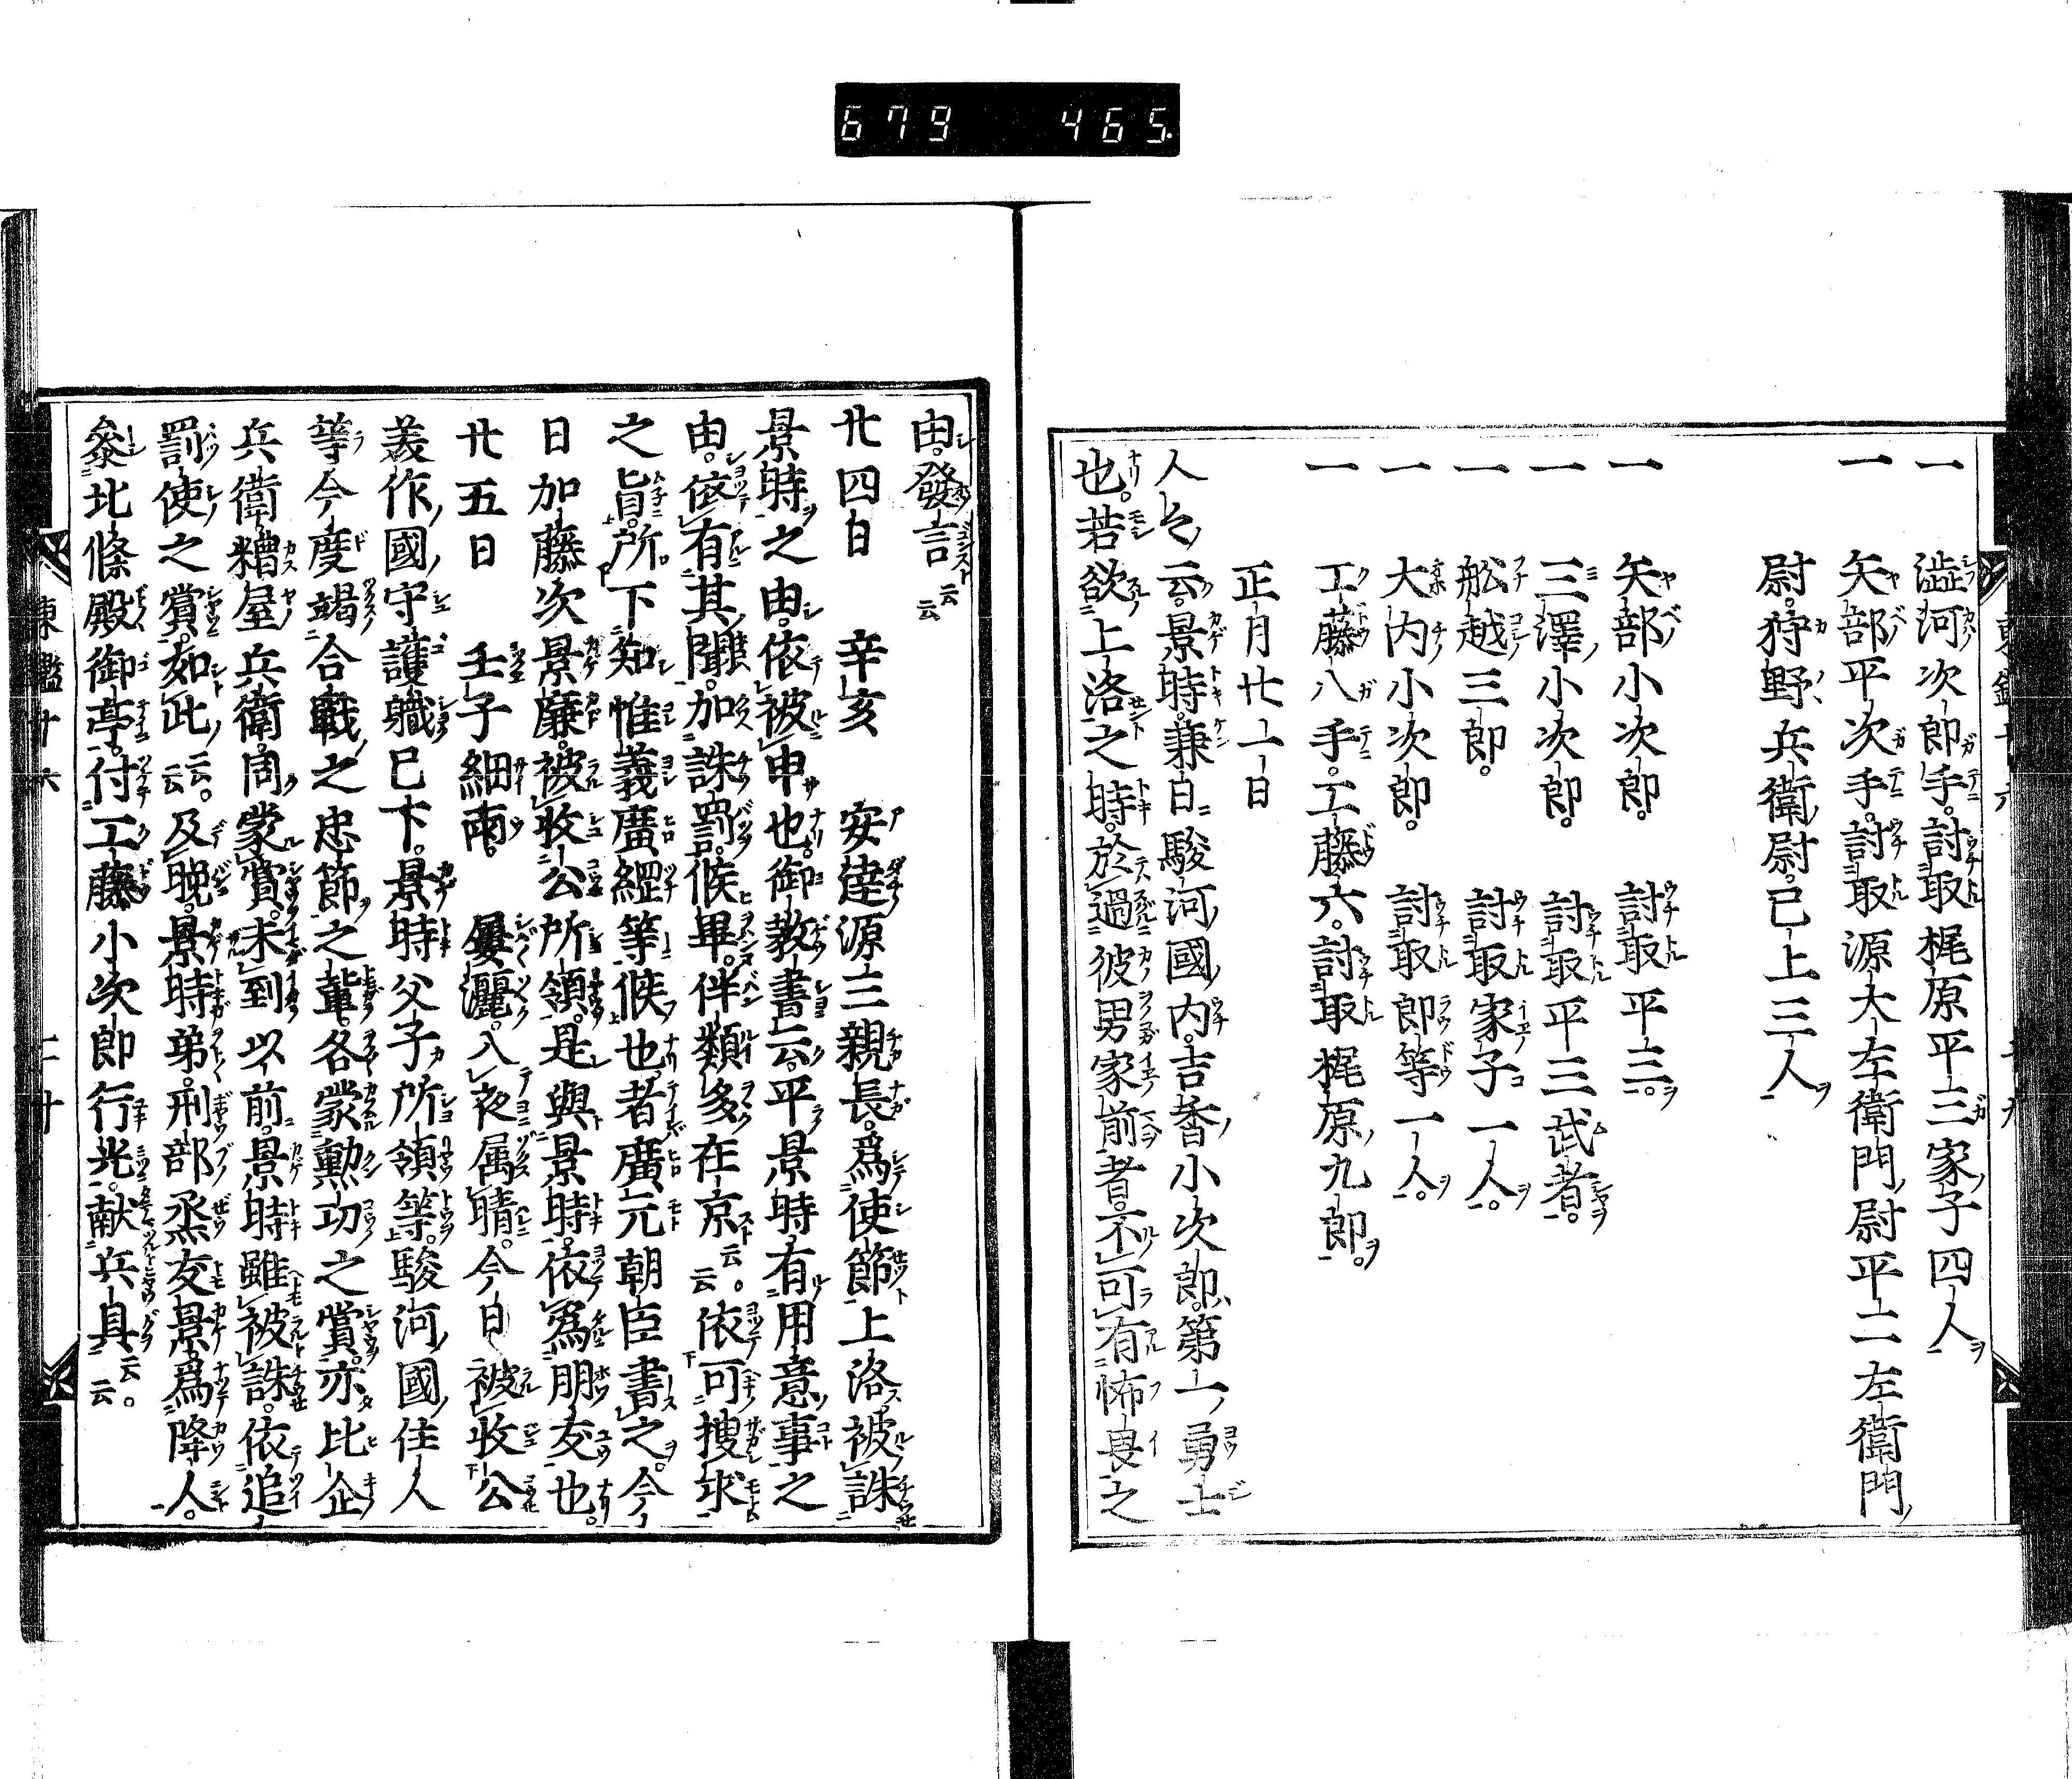 679 465
一 澁河次郎手討取梶原平三家子四人
一 矢部平次手討取源大左衛門尉平二左衛門
尉狩野兵衛尉已上三人
一 矢部小次郎 討取平三
一 三澤小次郎 討取平三武者
一 舩越三郎 討取家子一人
一 大内小次郎 討取郎等一人
一 工藤八手工藤六討取梶原九郎
正月廿一日
人々云景時兼日駿河國内吉香小次郎第一勇士
也若欲上洛之時於過彼男家前者不可有怖畏之
由發言云云
廿四日 辛亥 安達源三親長爲使節上洛被誅
景時之由依被申也御教書云平景時有用意事之
由依有其聞加誅罰候畢伴類多在京云云依可搜求
之旨所下知惟義廣綱等候也者廣元朝臣書之今
日加藤次景廉被收公所領是與景時依爲朋友也
廿五日 壬子 細雨屢灑入夜属晴今日被收公
美作國守護職已下景時父子所領等駿河國住人
等今度竭合戰之忠節之輩各蒙勲功之賞亦比企
兵衛糟屋兵衛同蒙賞未到以前景時雖被誅依追
罰使之賞如此云云及晩景時弟刑部烝友景爲降人
參北條殿御亭付工藤小次郎行光献兵具云云
東鑑廿六 二十